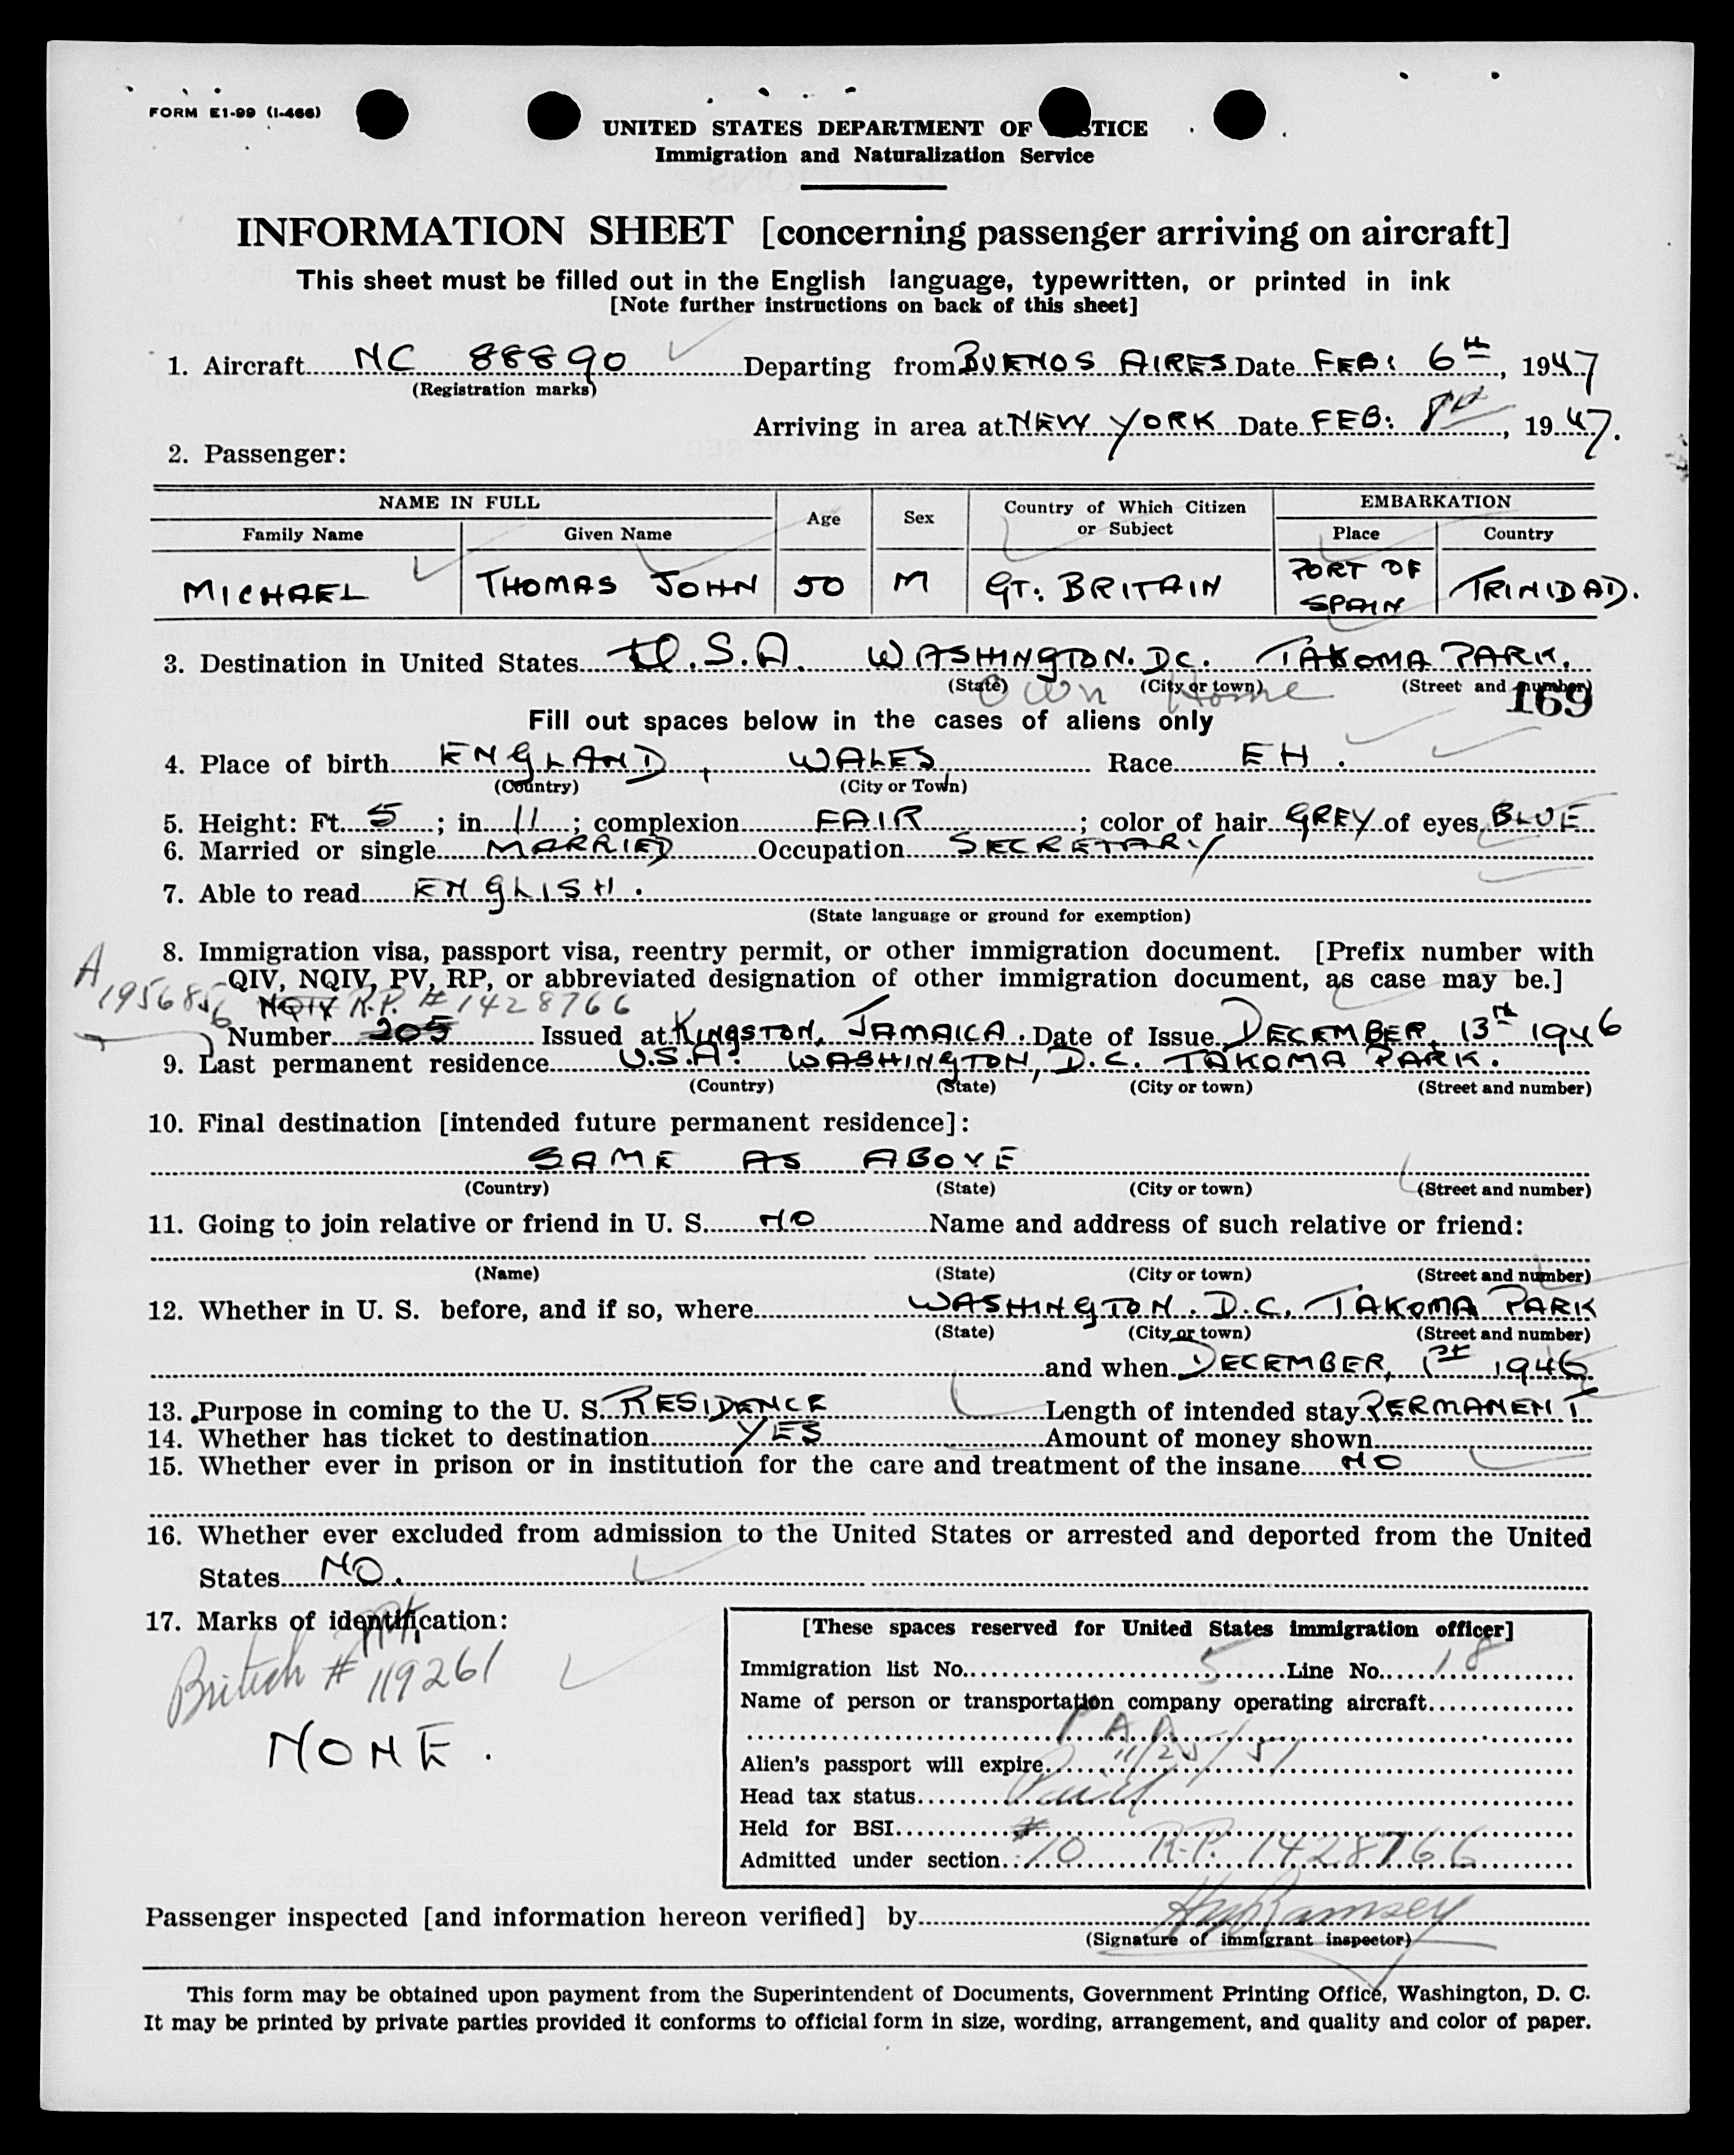 FORM E1-99 (I-466)
UNITED STATES DEPARTMENT OF TICE
Immigration and Naturalization Service
INFORMATION SHEET [concerning passenger arriving on aircraft]
This sheet must be filled out in the English language, typewritten, or printed in ink
[Note further instructions on back of this sheet]
1. Aircraft NC 88890 Departing from BUENOS AIRES Date FEB: 6th, 1947
(Registration marks)
Arriving in area at NEW YORK Date FEB: 8th, 1947.
2. Passenger:
NAME IN FULL Age Sex Country of Which Citizen or Subject EMBARKATION
Family Name Given Name Place Country
MICHAEL THOMAS JOHN 50 M GT. BRITAIN PORT OF SPAIN TRINIDAD.
3. Destination in United States U.S.A. WASHINGTON. DC. TAKOMA PARK.
(State) (City or town) (Street and number)
Own Home 169
Fill out spaces below in the cases of aliens only
4. Place of birth ENGLAND, WALES Race EH.
(Country) (City or Town)
5. Height: Ft. 5; in. 11; complexion FAIR; color of hair GREY of eyes BLUE
6. Married or single MARRIED Occupation SECRETARY
7. Able to read ENGLISH.
(State language or ground for exemption)
8. Immigration visa, passport visa, reentry permit, or other immigration document. [Prefix number with
QIV, NQIV, PV, RP, or abbreviated designation of other immigration document, as case may be.]
A 1956856 NQIV R.P. # 1428766
Number 205 Issued at KINGSTON, JAMAICA. Date of Issue DECEMBER, 13th 1946
9. Last permanent residence U.S.A. WASHINGTON, D.C. TAKOMA PARK.
(Country) (State) (City or town) (Street and number)
10. Final destination [intended future permanent residence]:
SAME AS ABOVE
(Country) (State) (City or town) (Street and number)
11. Going to join relative or friend in U. S. NO Name and address of such relative or friend:
(Name) (State) (City or town) (Street and number)
12. Whether in U. S. before, and if so, where WASHINGTON. D.C. TAKOMA PARK
(State) (City or town) (Street and number)
and when DECEMBER, 1st 1946
13. Purpose in coming to the U. S. RESIDENCE Length of intended stay PERMANENT
14. Whether has ticket to destination YES Amount of money shown
15. Whether ever in prison or in institution for the care and treatment of the insane NO
16. Whether ever excluded from admission to the United States or arrested and deported from the United
States NO.
17. Marks of identification:
British PPt. # 119261
NONE.
[These spaces reserved for United States immigration officer]
Immigration list No. 5 Line No. 18
Name of person or transportation company operating aircraft
P A A
Alien's passport will expire 11/25/51
Head tax status Paid
Held for BSI
Admitted under section #10 R.P. 1428766
Passenger inspected [and information hereon verified] by Ramsey
(Signature of immigrant inspector)
This form may be obtained upon payment from the Superintendent of Documents, Government Printing Office, Washington, D. C.
It may be printed by private parties provided it conforms to official form in size, wording, arrangement, and quality and color of paper.